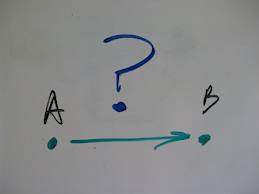 ?
A B